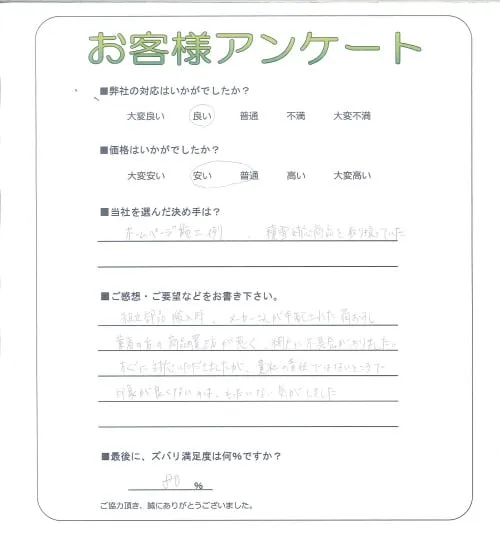 お客様アンケート
■弊社の対応はいかがでしたか？
大変良い 良い 普通 不満 大変不満
■価格はいかがでしたか？
大変安い 安い 普通 高い 大変高い
■当社を選んだ決め手は？
ホームページ施工例 、積雪対応商品を取り扱っていた
■ご感想・ご要望などをお書き下さい。
組立部品搬入時、メーカーさんが手配された荷おろし
業者の方の商品の置き方が悪く、網戸に不具合がありました。
すぐに対応いただきましたが、貴社の責任ではないところで
印象が良くないのは、もったいない気がしました
■最後に、ズバリ満足度は何%ですか？
80 %
ご協力頂き、誠にありがとうございました。